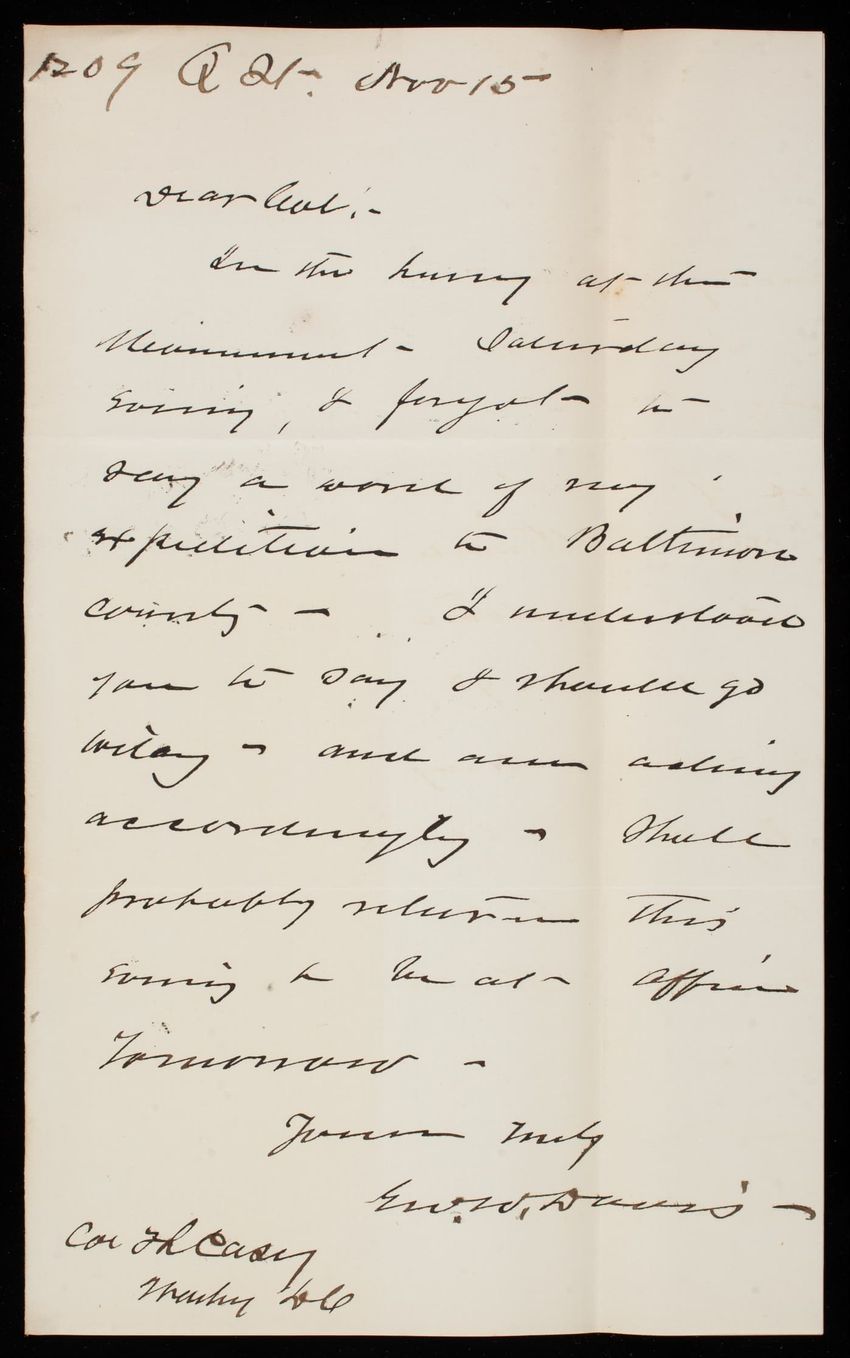 1209 Q St. Nov 15
Dear Col:-
In the hurry at the
Monument - Saturday
evening, I forgot to
say a word of my
expedition to Baltimore
county - I understood
you to say I should go
today - and am acting
accordingly - Shall
probably return this
evening to be at office
tomorrow -
Yours truly
Geo. W. Davis -
Col T L Casey
Washg DC